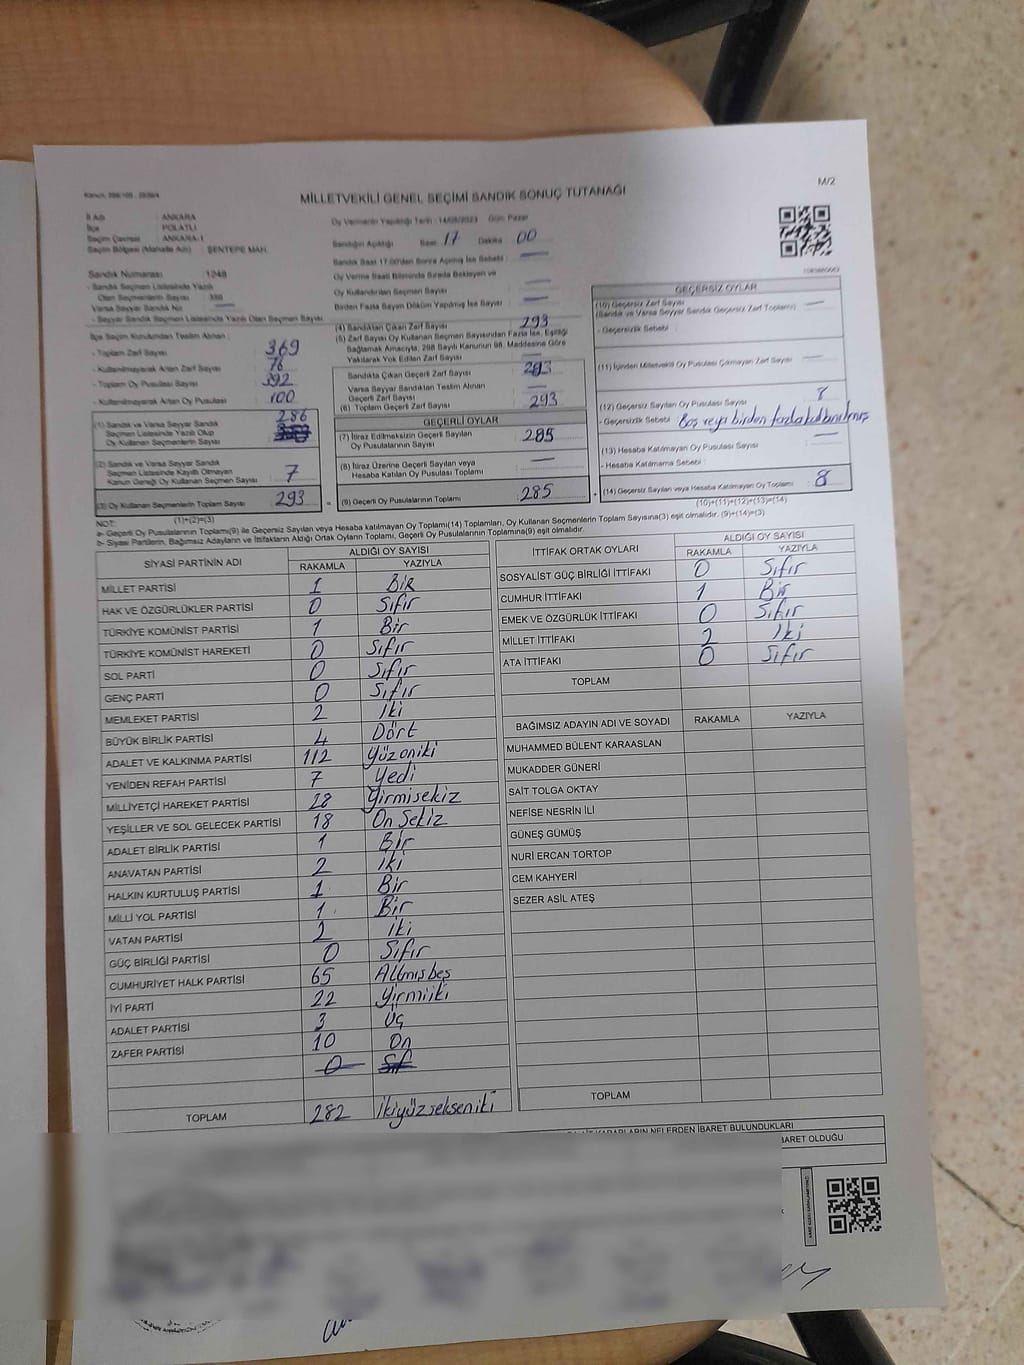 M/2
MİLLETVEKİLİ GENEL SEÇİMİ SANDIK SONUÇ TUTANAĞI
İl Adı : ANKARA
İlçe : POLATLI
Seçim Çevresi : ANKARA-1
Seçim Bölgesi (Mahalle Adı) : ŞENTEPE MAH.
Oy Vermenin Yapıldığı Tarih : 14/05/2023 Gün: Pazar
Sandığın Açıldığı Saat: 17 Dakika 00
Sandık Saat 17:00'den Sonra Açılmış İse Sebebi : —
Oy Verme Saati Bitiminde Sırada Bekleyen ve
Oy Kullandırılan Seçmen Sayısı : —
Birden Fazla Sayım Döküm Yapılmış İse Sayısı : —
Sandık Numarası : 1248
- Sandık Seçmen Listesinde Yazılı
Olan Seçmenlerin Sayısı :
Varsa Seyyar Sandık No : —
- Seyyar Sandık Seçmen Listesinde Yazılı Olan Seçmen Sayısı
İlçe Seçim Kurulundan Teslim Alınan :
- Toplam Zarf Sayısı 369
- Kullanılmayarak Artan Zarf Sayısı 76
- Toplam Oy Pusulası Sayısı 392
- Kullanılmayarak Artan Oy Pusulası 100
(1) Sandık ve Varsa Seyyar Sandık
Seçmen Listesinde Yazılı Olup
Oy Kullanan Seçmenlerin Sayısı 286
(2) Sandık ve Varsa Seyyar Sandık
Seçmen Listesinde Kayıtlı Olmayan
Kanun Gereği Oy Kullanan Seçmen Sayısı 7
(3) Oy Kullanan Seçmenlerin Toplam Sayısı 293
(1)+(2)=(3)
(4) Sandıktan Çıkan Zarf Sayısı 293
(5) Zarf Sayısı Oy Kullanan Seçmen Sayısından Fazla İse, Eşitliği
Sağlamak Amacıyla, 298 Sayılı Kanunun 98. Maddesine Göre
Yakılarak Yok Edilen Zarf Sayısı —
Sandıkta Çıkan Geçerli Zarf Sayısı 293
Varsa Seyyar Sandıktan Teslim Alınan
Geçerli Zarf Sayısı —
(6) Toplam Geçerli Zarf Sayısı 293
GEÇERLİ OYLAR
(7) İtiraz Edilmeksizin Geçerli Sayılan
Oy Pusulalarının Sayısı 285
(8) İtiraz Üzerine Geçerli Sayılan veya
Hesaba Katılan Oy Pusulası Toplamı —
= (9) Geçerli Oy Pusulalarının Toplamı 285
GEÇERSİZ OYLAR
(10) Geçersiz Zarf Sayısı
(Sandık ve Varsa Seyyar Sandık Geçersiz Zarf Toplamı) —
- Geçersizlik Sebebi :
(11) İçinden Milletvekili Oy Pusulası Çıkmayan Zarf Sayısı —
(12) Geçersiz Sayılan Oy Pusulası Sayısı 8
- Geçersizlik Sebebi : Boş veya birden fazla kullanılmış
(13) Hesaba Katılmayan Oy Pusulası Sayısı —
- Hesaba Katılmama Sebebi :
+ (14) Geçersiz Sayılan veya Hesaba Katılmayan Oy Toplamı 8
(10)+(11)+(12)+(13)=(14)
NOT:
a- Geçerli Oy Pusulalarının Toplamı(9) ile Geçersiz Sayılan veya Hesaba katılmayan Oy Toplamı(14) Toplamları, Oy Kullanan Seçmenlerin Toplam Sayısına(3) eşit olmalıdır. (9)+(14)=(3)
b- Siyasi Partilerin, Bağımsız Adayların ve İttifakların Aldığı Ortak Oyların Toplamı, Geçerli Oy Pusulalarının Toplamına(9) eşit olmalıdır.
SİYASİ PARTİNİN ADI ALDIĞI OY SAYISI
RAKAMLA YAZIYLA
MİLLET PARTİSİ 1 Bir
HAK VE ÖZGÜRLÜKLER PARTİSİ 0 Sıfır
TÜRKİYE KOMÜNİST PARTİSİ 1 Bir
TÜRKİYE KOMÜNİST HAREKETİ 0 Sıfır
SOL PARTİ 0 Sıfır
GENÇ PARTİ 0 Sıfır
MEMLEKET PARTİSİ 2 İki
BÜYÜK BİRLİK PARTİSİ 4 Dört
ADALET VE KALKINMA PARTİSİ 112 Yüzoniki
YENİDEN REFAH PARTİSİ 7 Yedi
MİLLİYETÇİ HAREKET PARTİSİ 28 Yirmisekiz
YEŞİLLER VE SOL GELECEK PARTİSİ 18 On Sekiz
ADALET BİRLİK PARTİSİ 1 Bir
ANAVATAN PARTİSİ 2 İki
HALKIN KURTULUŞ PARTİSİ 1 Bir
MİLLİ YOL PARTİSİ 1 Bir
VATAN PARTİSİ 2 İki
GÜÇ BİRLİĞİ PARTİSİ 0 Sıfır
CUMHURİYET HALK PARTİSİ 65 Altmışbeş
İYİ PARTİ 22 Yirmiiki
ADALET PARTİSİ 3 Üç
ZAFER PARTİSİ 10 On
0 Sıf
TOPLAM 282 İkiyüzsekseniki
İTTİFAK ORTAK OYLARI ALDIĞI OY SAYISI
RAKAMLA YAZIYLA
SOSYALİST GÜÇ BİRLİĞİ İTTİFAKI 0 Sıfır
CUMHUR İTTİFAKI 1 Bir
EMEK VE ÖZGÜRLÜK İTTİFAKI 0 Sıfır
MİLLET İTTİFAKI 2 İki
ATA İTTİFAKI 0 Sıfır
TOPLAM
BAĞIMSIZ ADAYIN ADI VE SOYADI RAKAMLA YAZIYLA
MUHAMMED BÜLENT KARAASLAN
MUKADDER GÜNERİ
SAİT TOLGA OKTAY
NEFİSE NESRİN İLİ
GÜNEŞ GÜMÜŞ
NURİ ERCAN TORTOP
CEM KAHYERİ
SEZER ASİL ATEŞ
TOPLAM
KARARLARIN NELERDEN İBARET BULUNDUKLARI
BARET OLDUĞU